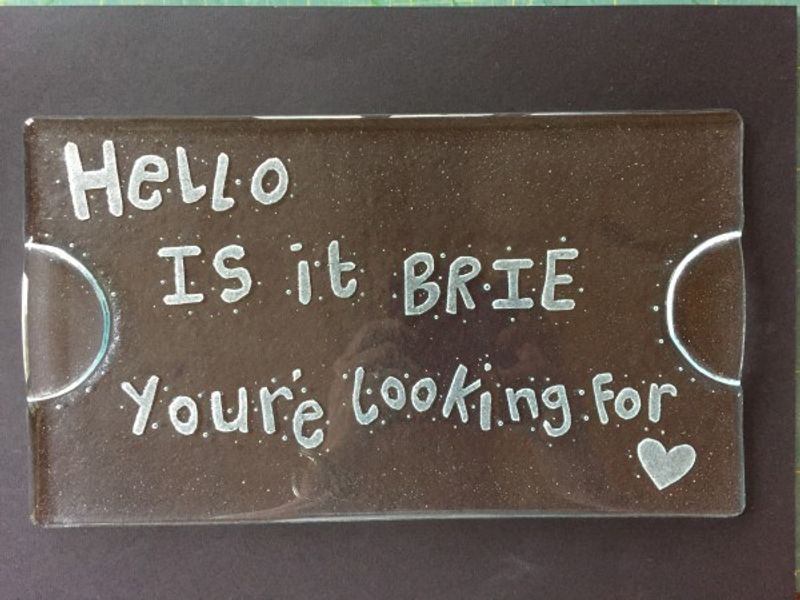 Hello
Is it BRIE
You're looking for